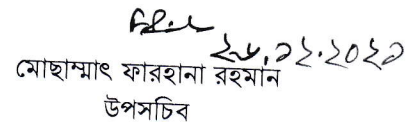 ২৮.১২.২০২১
মোছাম্মাৎ ফারহানা রহমান
উপসচিব